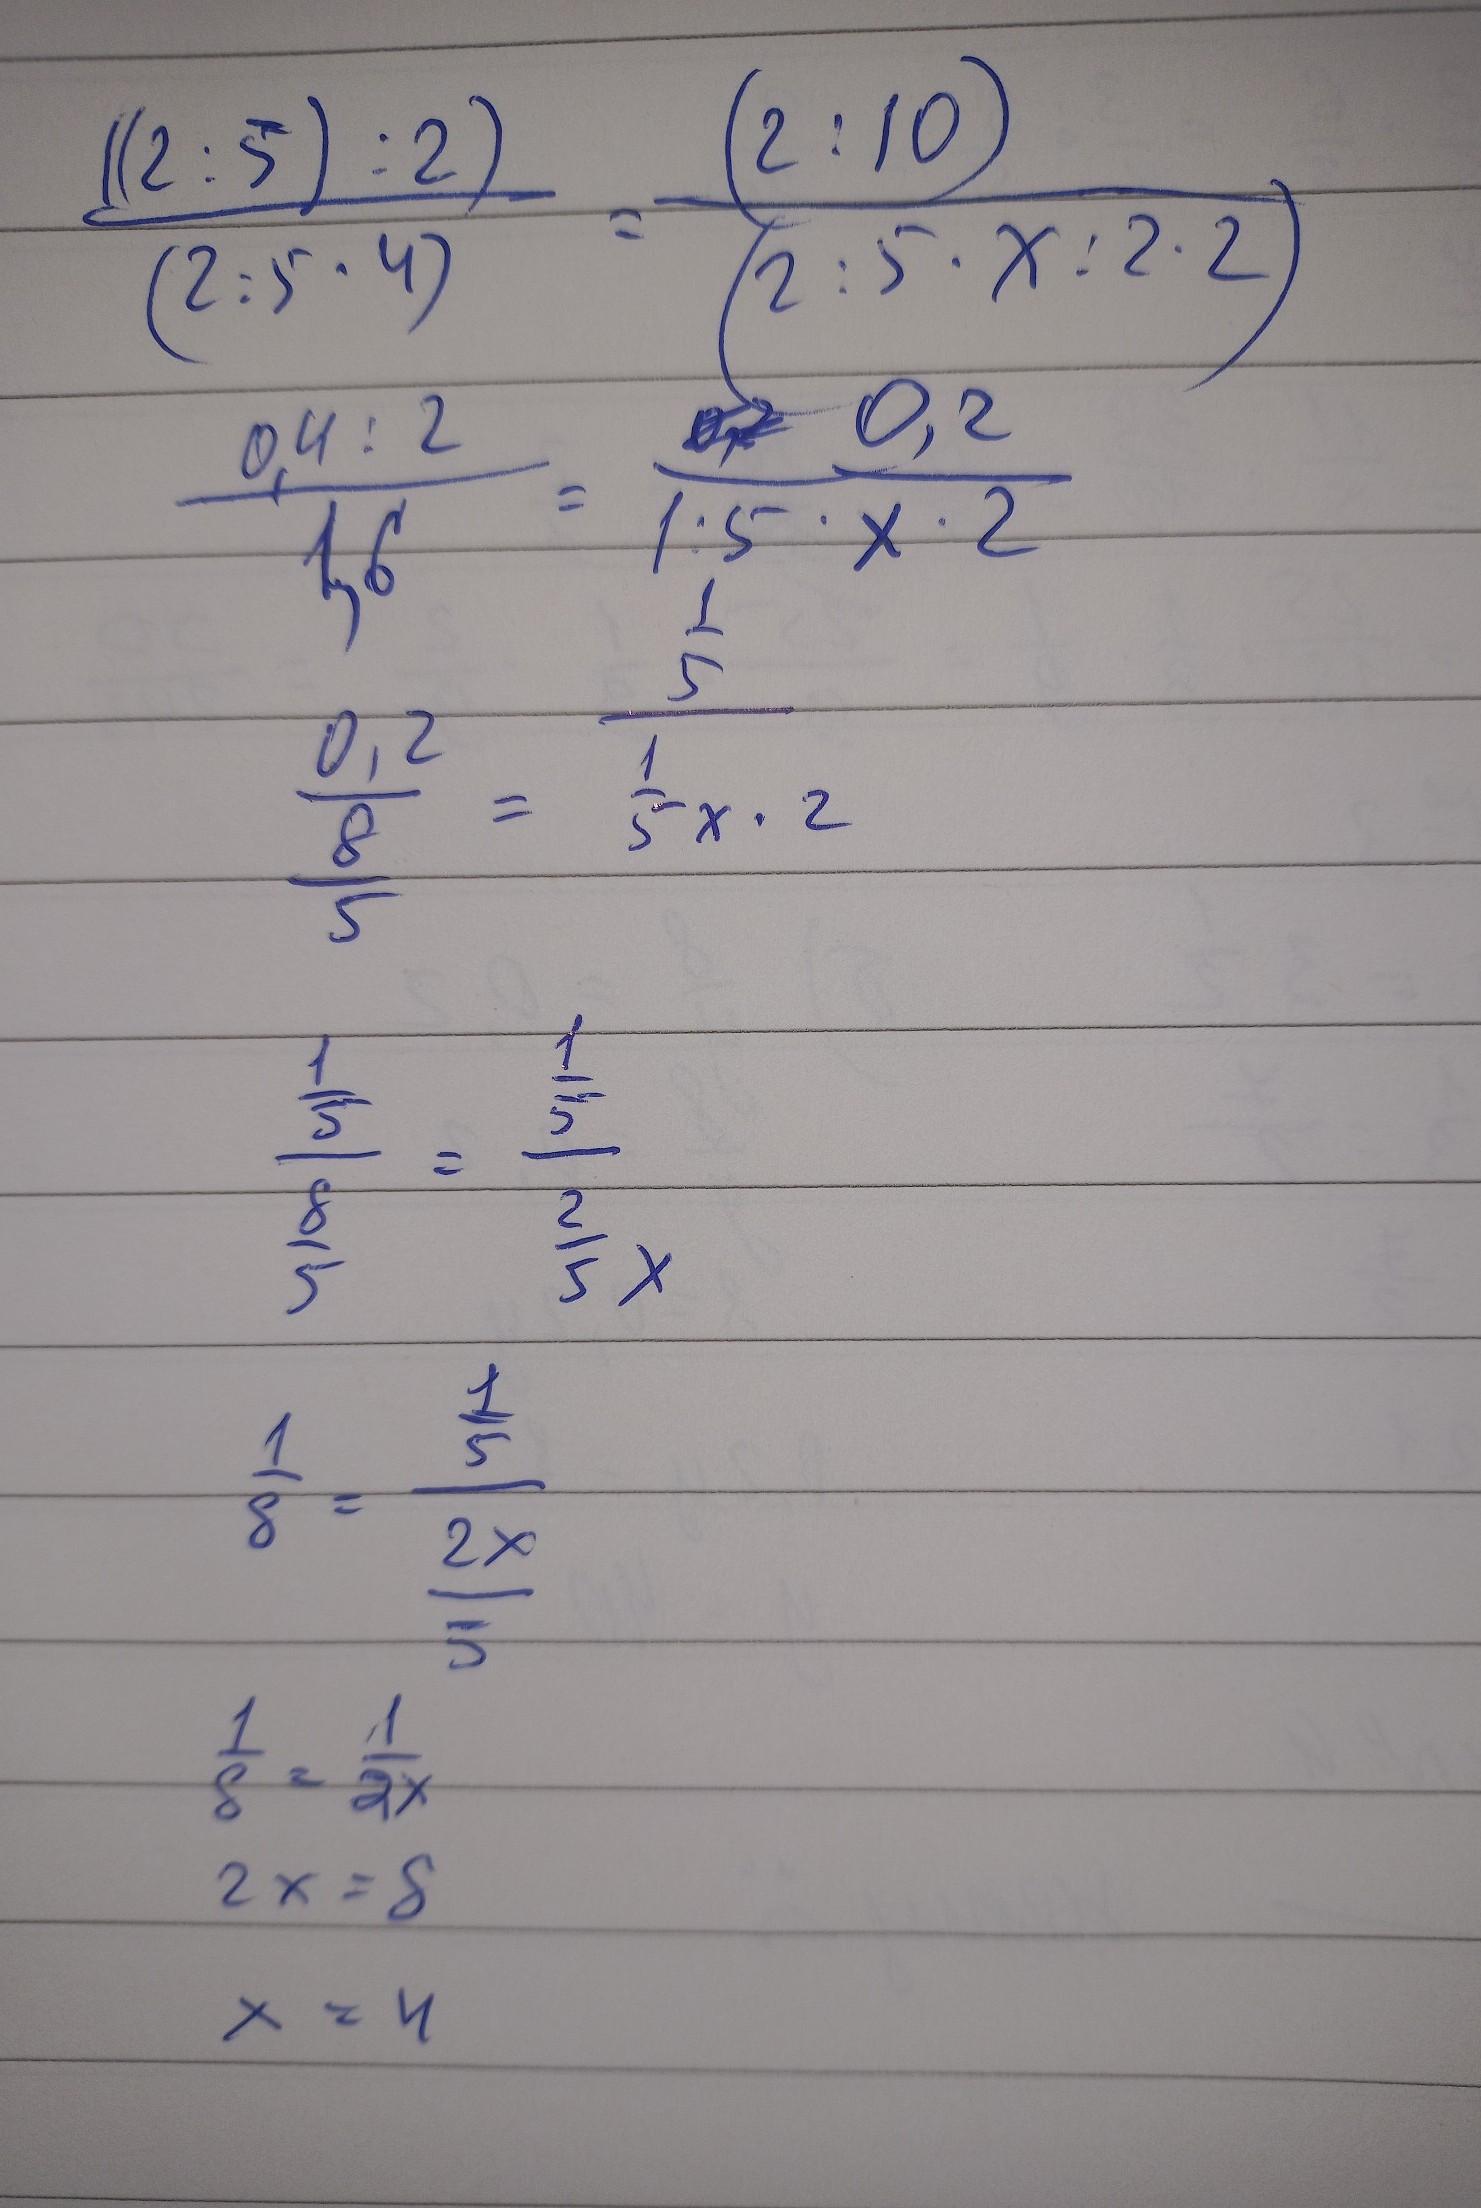 ((2:5):2)/(2:5·4) = (2:10)/(2:5·x:2·2)
0,4:2/1,6 = 0,2/1:5·x·2
0,2/(8/5) = (1/5)/(1/5 x·2)
(1/5)/(8/5) = (1/5)/(2/5 x)
1/8 = (1/5)/(2x/5)
1/8 = 1/2x
2x = 8
x = 4